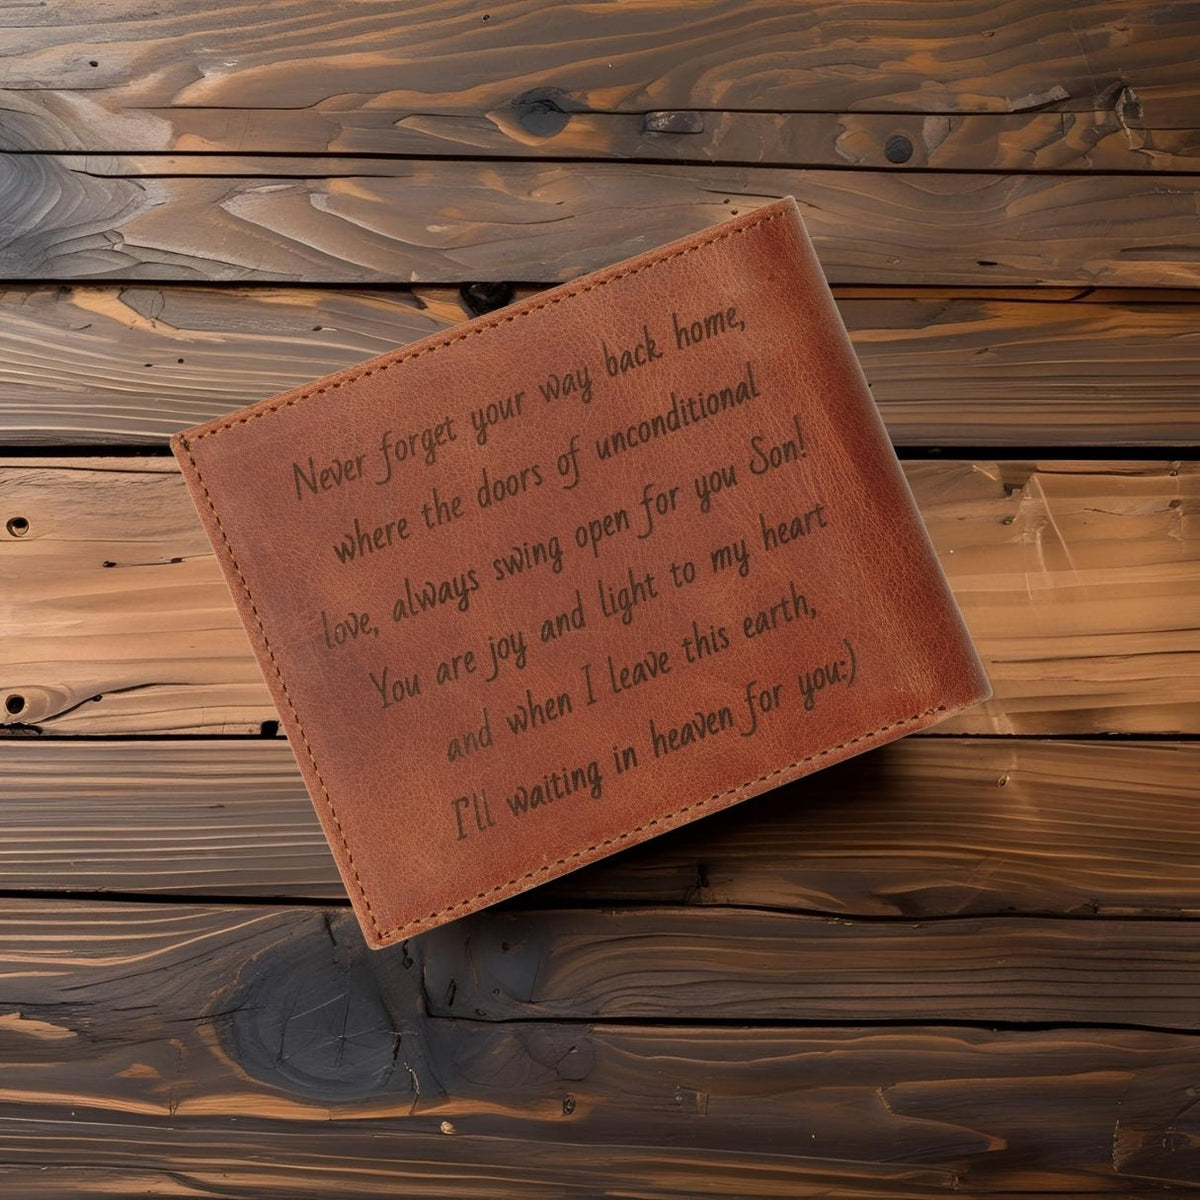 Never forget your way back home,
where the doors of unconditional
love, always swing open for you Son!
You are joy and light to my heart
and when I leave this earth,
I'll waiting in heaven for you:)